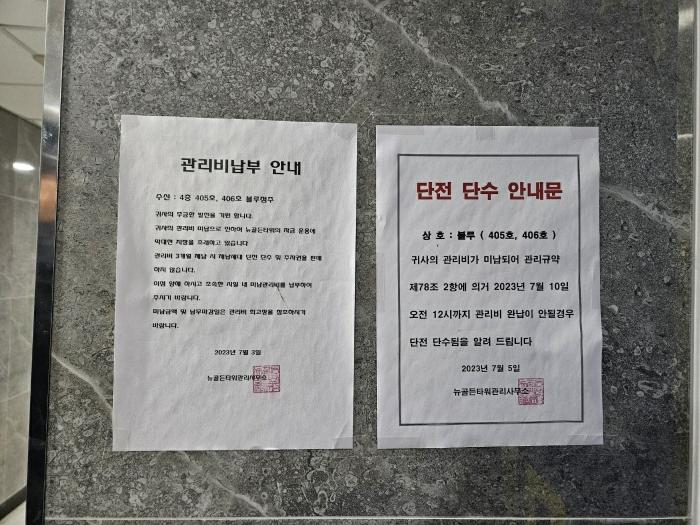 관리비납부 안내
수신 : 4층 405호, 406호 블루청주
귀사의 무궁한 발전을 기원 합니다.
귀사의 관리비 미납으로 인하여 뉴골든타워의 자금 운용에
막대한 지장을 초래하고 있습니다
관리비 3개월 체납 시 체납세대 단전 단수 및 주차권을 판매
하지 않습니다.
이점 양해 하시고 조속한 시일 내 미납관리비를 납부하여
주시기 바랍니다.
미납금액 및 납부마감일은 관리비 의고장을 참조하시기
바랍니다.
2023년 7월 3일
뉴골든타워관리사무소
단전 단수 안내문
상 호 : 블루 ( 405호, 406호 )
귀사의 관리비가 미납되어 관리규약
제78조 2항에 의거 2023년 7월 10일
오전 12시까지 관리비 완납이 안될경우
단전 단수됨을 알려 드립니다
2023년 7월 5일
뉴골든타워관리사무소